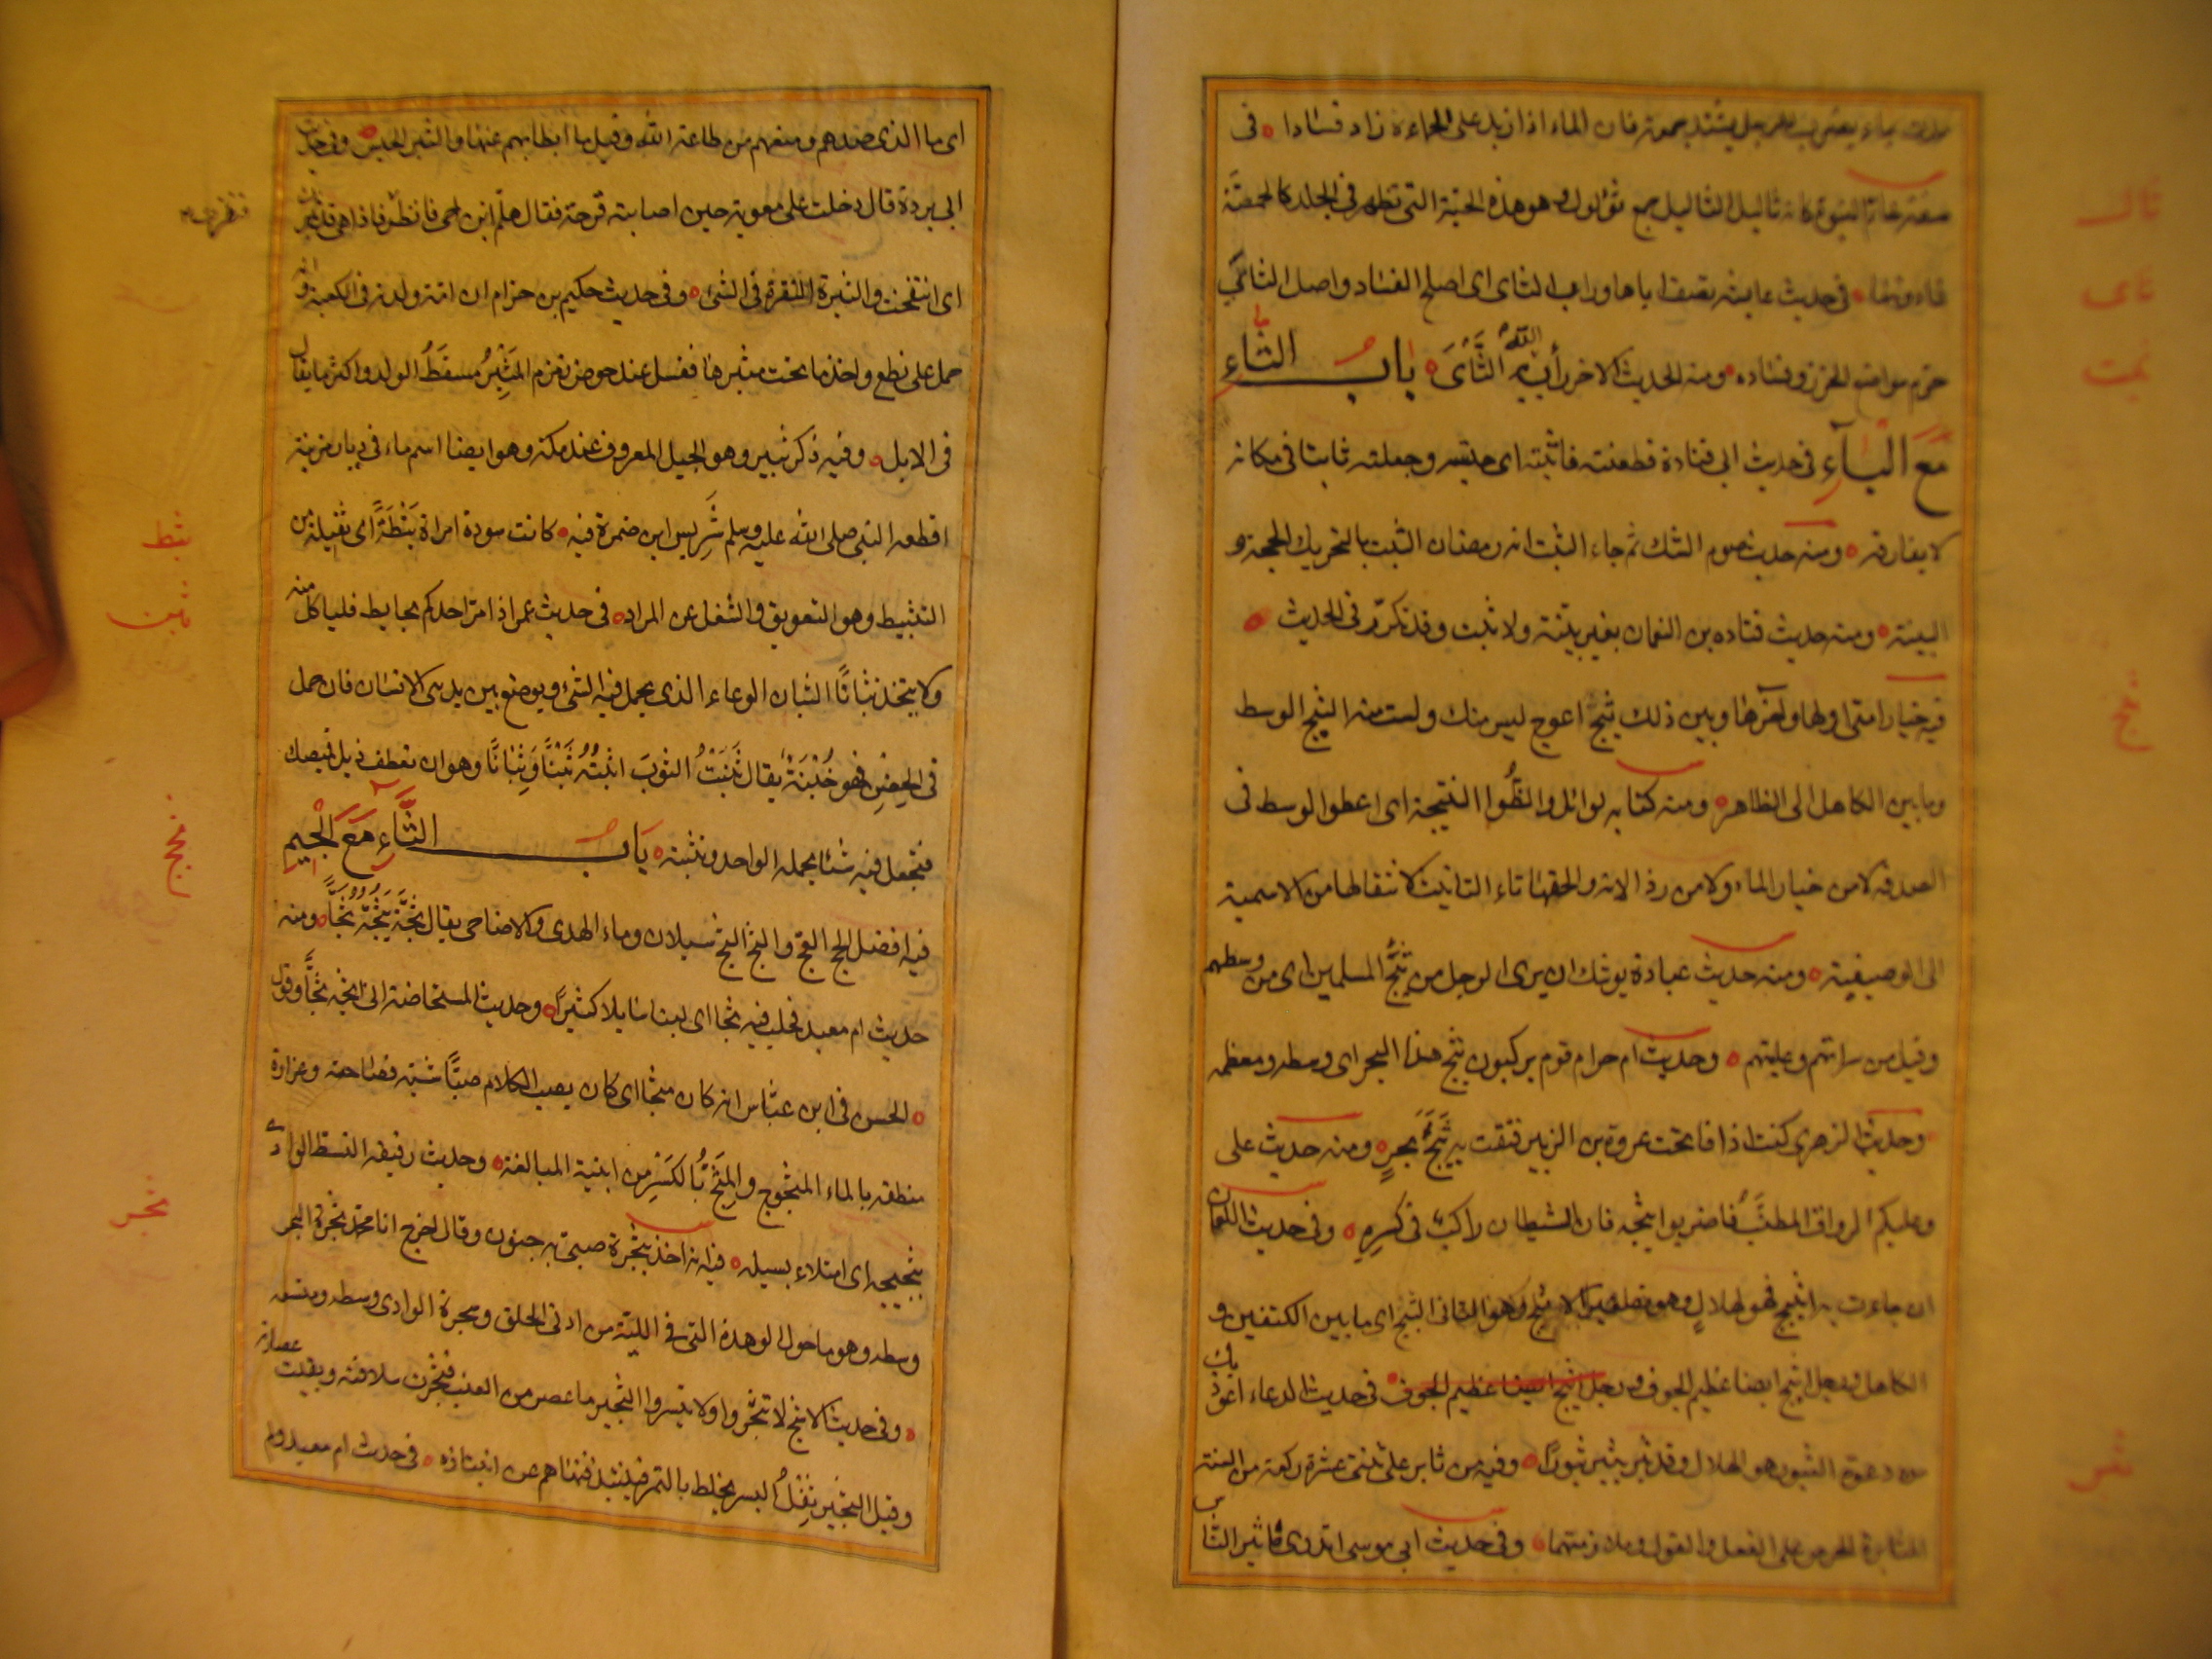 ثال
ثاى
ثبت
ثبج
ثبر
يشتد بحموته فان الماء اذا زيد على الحماءة زاد فسادا ٥ فى
صفة خاتم النبوة كانه ثاليل الثاليل جمع ثؤلول وهو هذه الحبة التى تظهر فى الجلد كالحمصة
فما دونها ٥ فى حديث عايشه تصف اباها وراب الثاى اى اصلح الفساد واصل الثاى
خرم مواضع الخرز وفساده ٥ ومنه الحديث الاخر رأب الله به الثَّأَىَ ٥ باب الثاء
مَعَ الْبَآءِ فى حديث ابى قتادة فطعنته فاثبته اى حبسته وجعلته ثابتا فى مكانه
لا يفارقه ٥ ومنه حديث صوم الشك ثم جاء الثبت انه رمضان الثبت بالتحريك الحجة و
البينة ٥ ومنه حديث قتاده بن النعمان بغير بينة ولا ثبت وقد تكرّر فى الحديث ٥
فيه خيار امتى اولها واخرها وبين ذلك ثبج اعوج ليس منك ولست منه الثبج الوسط
وما بين الكاهل الى الظاهر ٥ ومنه كتابه لوائل وانطُوا الثبجة اى اعطوا الوسط فى
الصدقه لا من خيار المال ولا من رذالته والحقها تاء التانيث لانتقالها من الاسمية
الى الوصيفية ٥ ومنه حديث عبادة يوشك ان يرى الرجل من ثبج المسلمين اى من وسطهم
وقيل من سراتهم وعليتهم ٥ وحديث ام حرام قوم يركبون ثبج هذا البحر اى وسطه ومعظمه
وحديث الزهرى كنت اذا فاتحت عروة بن الزبير فتقت به ثَبَجَ بحرٍ ٥ ومنه حديث على
وعليكم الرواق المطنَّب فاضربوا ثبجه فان الشيطان راكب فى كسرِه ٥ وفى حديث اللعان
ان جاءت به اثيبج فهو لهلال وهو تصغير الاثبج وهو الناتى الثبج اى ما بين الكتفين و
الكاهل ورجل اثبج ايضا عظيم الجوف ورجل اثبج ايضا عظيم الجوف ٥ فى حديث الدعاء اعوذ بك
من دعوة الثبور هو الهلال وقد ثبر يثبر ثبورًا ٥ وفيه من ثابر على ثنتى عشرة ركعة من السنة
المثابرة الحرص على الفعل والقول وملازمتهما ٥ وفى حديث ابى موسى اتدرى ما ثبر الناس
اى ما الذى صدهم ومنعهم من طاعة الله وقيل ما ابطا بهم عنها والثبر الحبس ٥ وفى حديث
ابى بردة قال دخلت على معوية حين اصابته قرحة فقال هلمّ ابن اخى فانظر فاذا هى قد ثبرت
اى انفتحت والثبرة النقرة فى الشئ ٥ وفى حديث حكيم بن حزام ان امه ولدته فى الكعبة وانه
حمل على نطع واخذ ما تحت مثبرها فغسل عند حوض زمزم المَثْبِرُ مسقَطُ الولد واكثر ما يقال
فى الابل ٥ وفيه ذكر ثبير وهو الجبل المعروف عند مكة وهو ايضا اسم ماء فى ديار مزينة
اقطعه النبى صلى الله عليه وسلم شَرِيس ابن ضمرة فيه ٥ كانت سودة امراة ثَبْطَةً اى ثقيلة من
التثبيط وهو التعويق والشغل عن المراد ٥ فى حديث عمر اذا مرّ احدكم بحايط فلياكل منه
ولا يتخذ ثبانًا الثبان الوعاء الذى يحمل فيه الشئ ويوضع بين يدى الانسان فان حمل
فى الحِضْن فهو خُبْنَةٌ يقال ثَبَنْتُ الثوبَ اثبنُهُ ثَبْنًا وَثِبَانًا وهو ان تعطف ذيل قميصك
فتجعل فيه شئا تحمله الواحدة ثبنة ٥ بَاب الثَّاءِ مَعَ الْجِيمِ
فيه افضل الحج العج والثج الثج سيلان دماء الهدى والاضاحى يقال ثجَّهُ يَثُجُّهُ ثَجًّا ٥ ومنه
حديث ام معبد فحلب فيه ثجا اى لبنا سايلا كثيرًا ٥ وحديث المستحاضة انى اثجه ثجًّا وقول
٥ الحسن فى ابن عبّاس انه كان مثجا اى كان يصب الكلام صبًّا شبه فصاحته وغزارة
منطقه بالماء المثجوج والمِثَجُّ بالكَسْرِ من ابنية المبالغة ٥ وحديث رقيقه اكتظ الوادى
بثجيجه اى امتلاء بسيله ٥ فيه انه اخذ بثجرة صبى به جنون وقال اخرج انا محمد ثجرة النحر
وسطه وهو ما حول الوهدة التى فى اللبّة من ادنى الحلق وثجرة الوادى وسطه ومتسعه
٥ وفى حديث الاشج لا تثجروا ولا تبسروا الثجير ما عصر من العنب فجرت سلافته وبقيت عصارته
وقيل الثجير ثفل البسر يخلط بالتمر فينتبذ فنهاهم عن انتباذه ٥ فى حديث ام معبد ولم
ثبط
ثبن
ثجج
ثجر